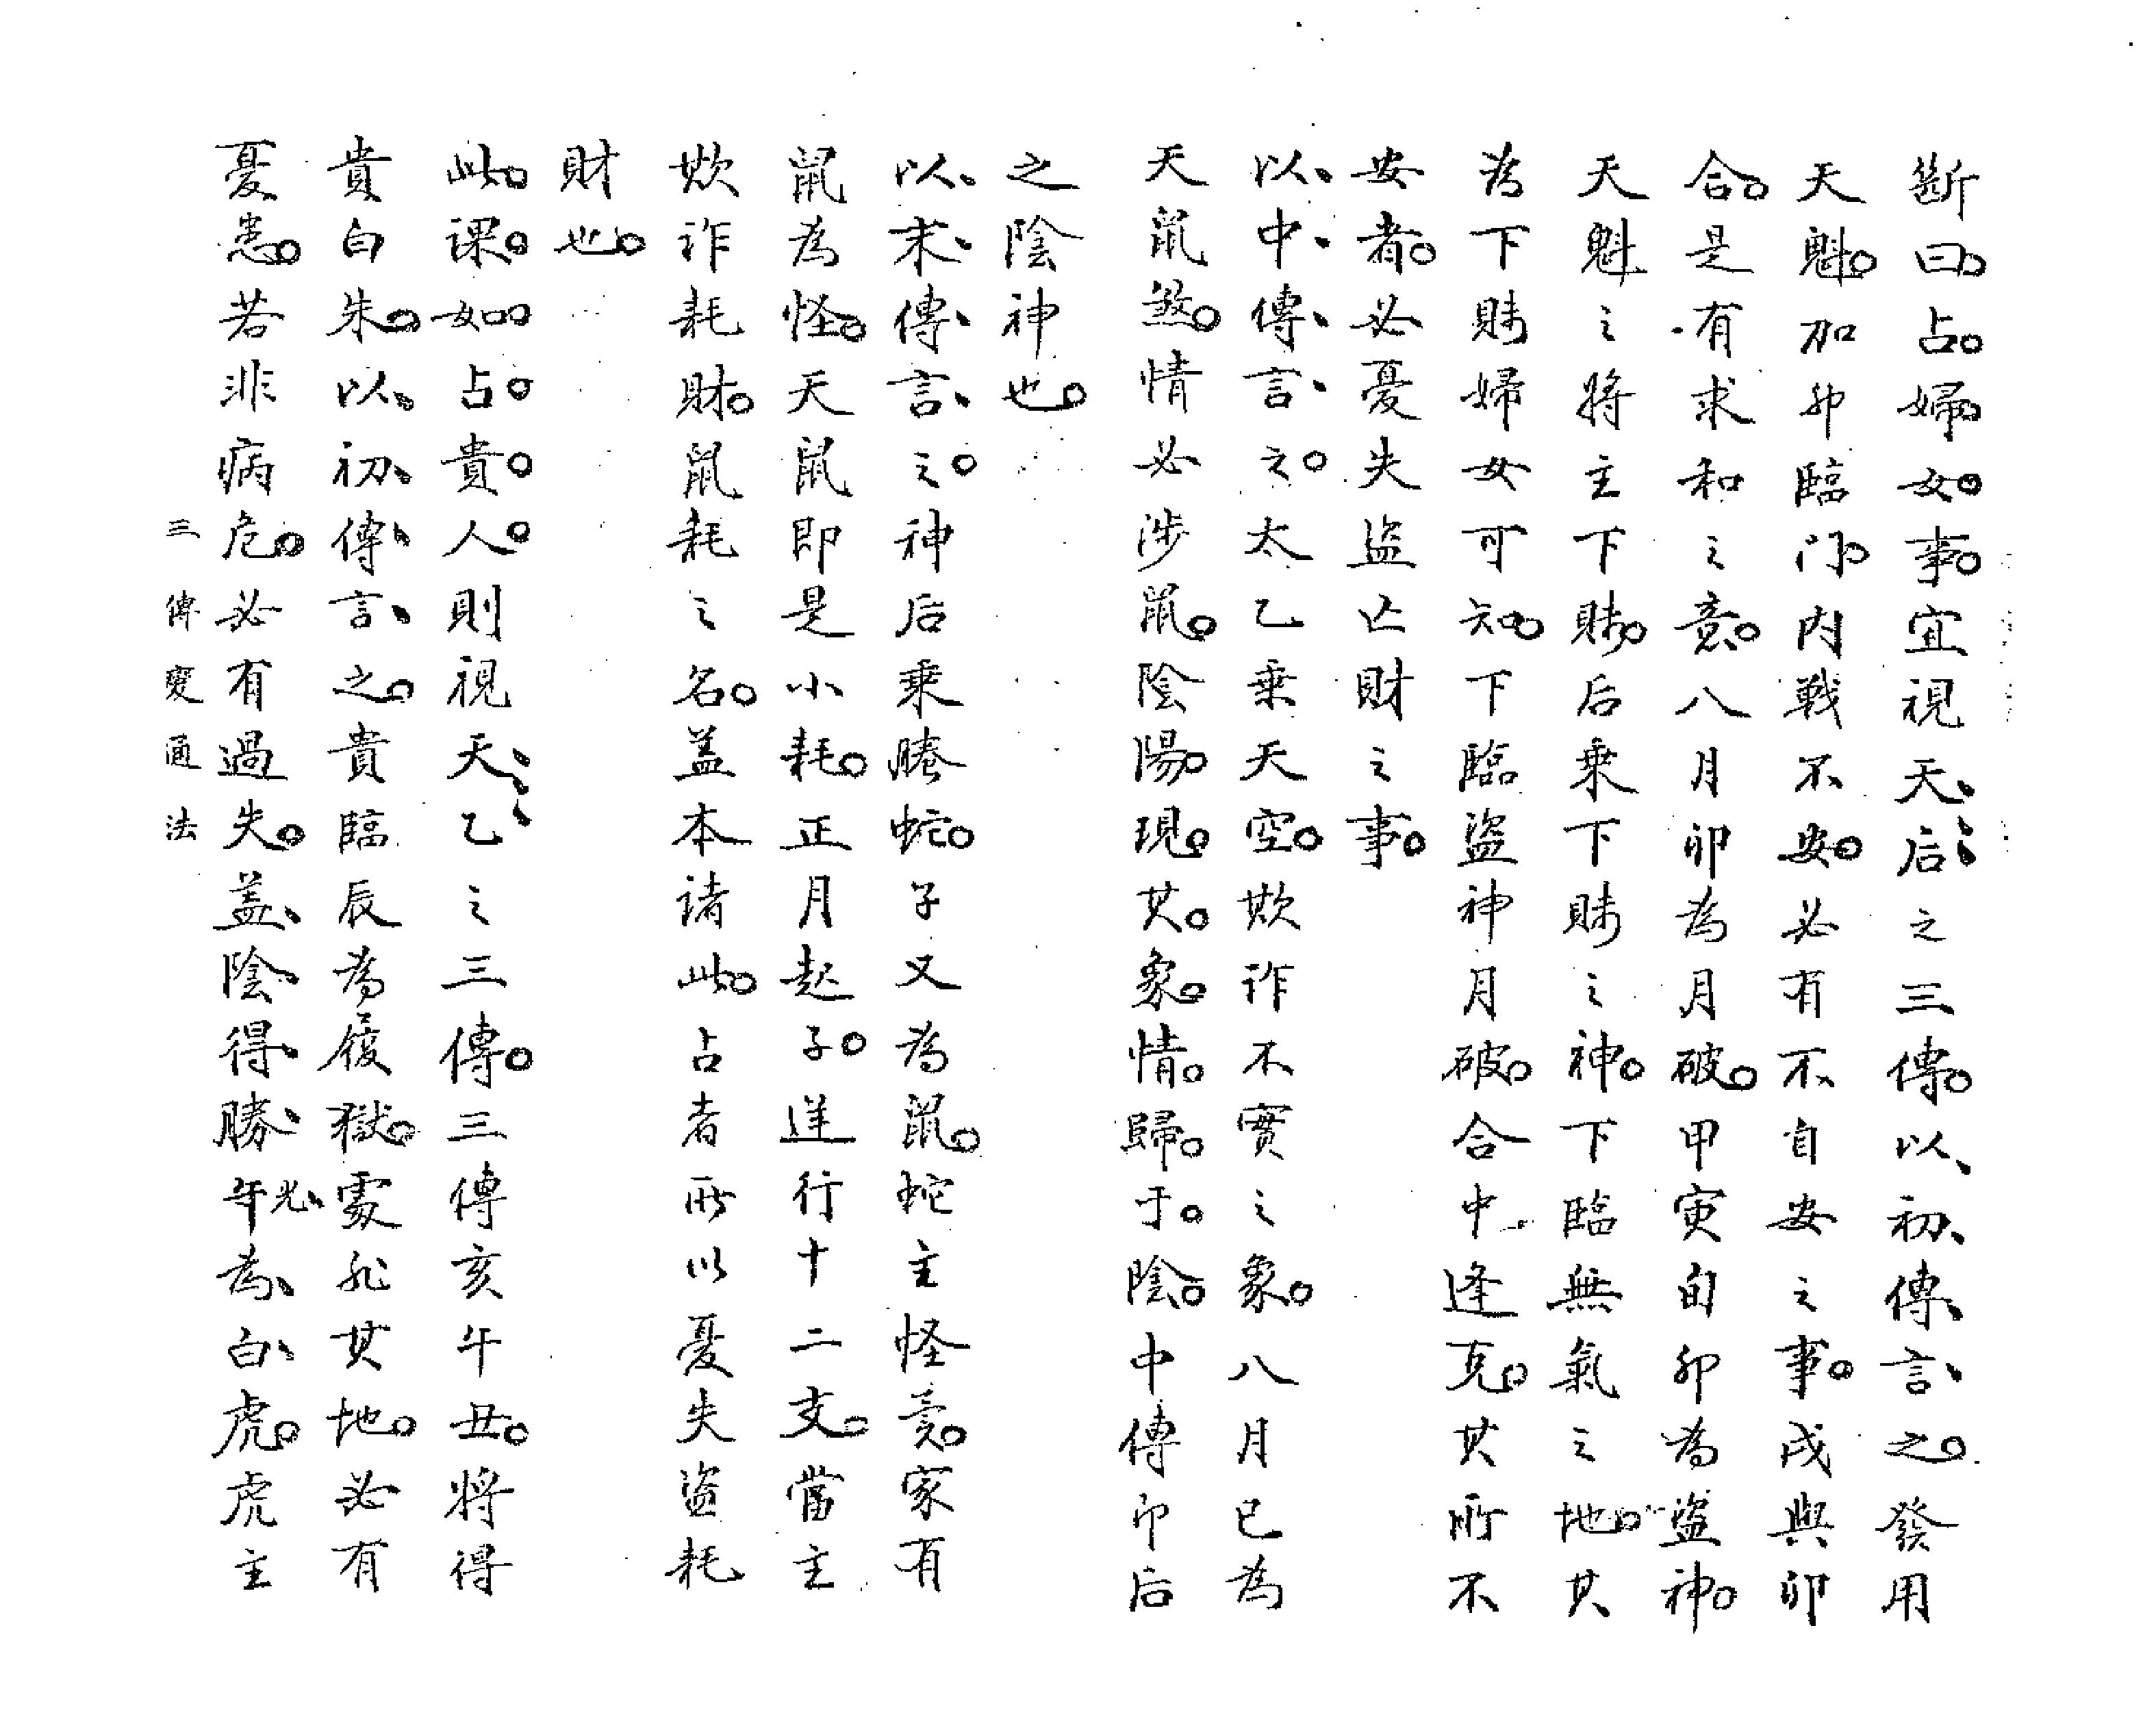 斷曰占婦女事。宜視天后之三傳。以初傳言之。發用
天魁。加卯臨门。内戰不安。必有不自安之事。戌與卯
合。是有求和之意。八月卯為月破。甲寅旬卯為盜神。
天魁之将主下賎。后乗下賎之神。下臨無氣之地。其
為下賎婦女可知。下臨盜神月破。合中逢克。其所不
安者。必憂失盜亡財之事。
以中傳言之。太乙乗天空。欺诈不實之象。八月巳為
天鼠煞。情必涉鼠。陰陽現其象。情歸于陰。中傳卽后
之陰神也。
以末傳言之。神后乘螣蛇。子又為鼠。蛇主怪異。家有
鼠為怪。天鼠即是小耗。正月起子。逆行十二支。當主
欺诈耗財。鼠耗之名。盖本诸此。占者所以憂失盜耗
財也。
此课如占貴人。則視天乙之三傳。三傳亥午丑。将得
貴白朱。以初傳言之。貴臨辰為履獄。處非其地。必有
憂患。若非病危。必有過失。盖陰得勝光午為白虎。虎主
三傳變通法